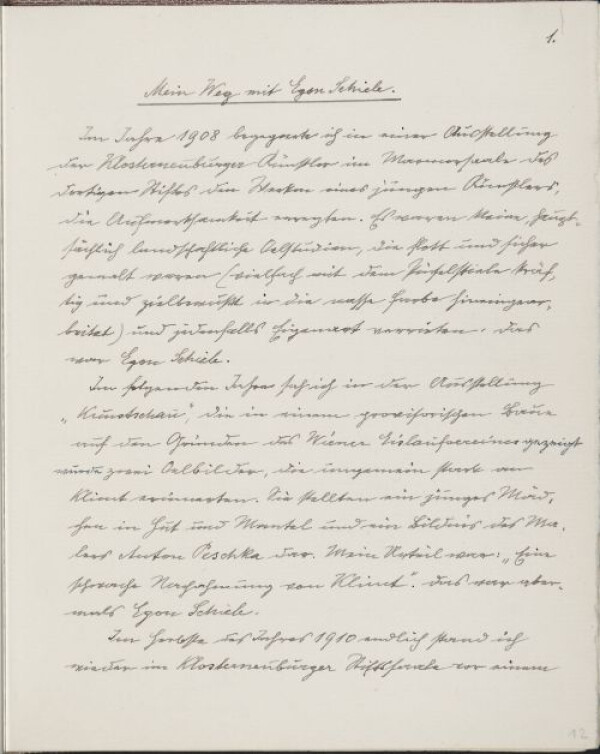 1.
Mein Weg mit Egon Schiele.
Im Jahre 1908 begegnete ich in einer Ausstellung
der Klosterneuburger Künstler im Marmorsaale des
dortigen Stiftes den Werken eines jungen Künstlers,
die Aufmerksamkeit erregten. Es waren kleine, haupt-
sächlich landschaftliche Oelstudien, die flott und sicher
gemalt waren (vielfach mit dem Pinselstiele kräf-
tig und zielbewußt in die nasse Farbe hineingear-
beitet) und jedenfalls Eigenart verrieten. Das
war Egon Schiele.
Im folgenden Jahre sah ich in der Ausstellung
„Kunstschau", die in einem provisorischen Baue
auf den Gründen des Wiener Eislaufvereines gezeigt
wurde zwei Oelbilder, die ungemein stark an
Klimt erinnerten. Sie stellten ein junges Mäd-
chen in Hut und Mantel und ein Bildnis des Ma-
lers Anton Peschka dar. Mein Urteil war: „Eine
schwache Nachahmung von Klimt". Das war aber-
mals Egon Schiele.
Im Herbste des Jahres 1910 endlich stand ich
wieder im Klosterneuburger Stiftssaale vor einem
12